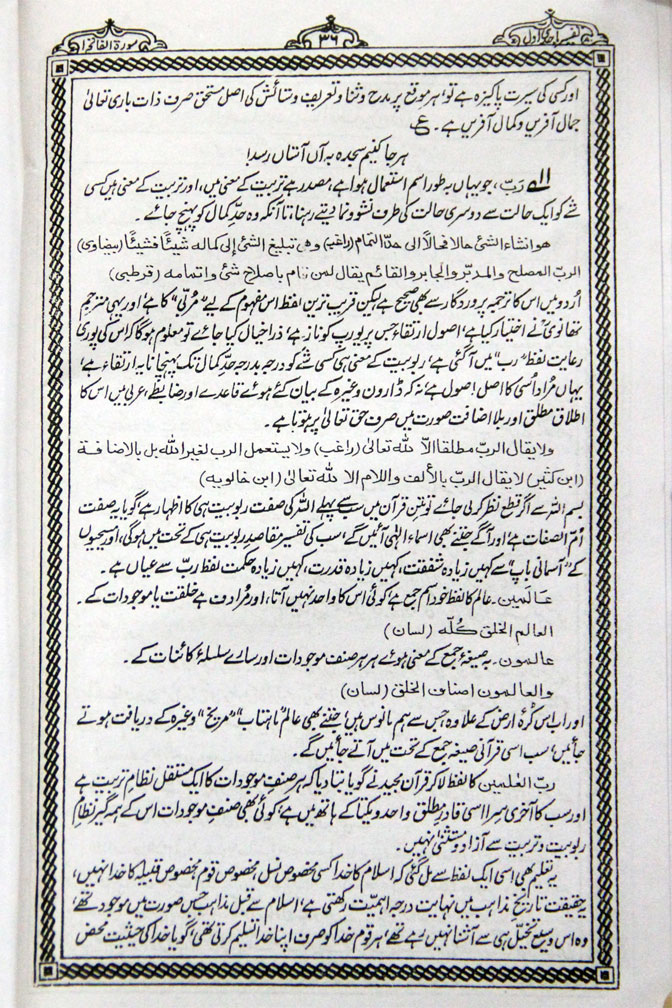 تفسیر ماجدی اول
۳۶
سورۃ الفاتحۃ ا
اور کسی کی سیرت پاکیزہ ہے تو، ہر موقع پر مدح و ثنا و تعریف و ستائش کی اصل مستحق صرف ذات باری تعالیٰ
جمال آفریں و کمال آفریں ہے۔ ع
ہر جا کنیم سجدہ بہ آں آستاں رسد!
رَبّ، جو یہاں بہ طور اسم استعمال ہوا ہے، مصدر ہے تربیت کے معنی میں، اور تربیت کے معنی ہیں کسی
شئے کو ایک حالت سے دوسری حالت کی طرف نشوونما دیتے رہنا، تا آنکہ وہ حدِّ کمال کو پہنچ جائے۔
هو انشاء الشئ حالا فحالا الى حدّ التمام (راغب) وهى تبليغ الشئ إلى كماله شيئًا فشيئًا (بیضاوی)
الربّ المصلح والمدبّر والجابر والقائم يقال لمن قام باصلاح شئ واتمامه (قرطبی)
اُردو میں اس کا ترجمہ پروردگار سے بھی صحیح ہے لیکن قریب ترین لفظ اس مفہوم کے لیے ”مُربّی“ کا ہے، اور یہی مترجم
تھانویؒ نے اختیار کیا ہے، اصول ارتقاء جس پر یورپ کو ناز ہے، ذرا خیال کیا جائے تو معلوم ہوگا کہ اس کی پوری
رعایت لفظ ”رب“ میں آگئی ہے، ربوبیت کے معنی ہی کسی شئے کو درجہ بدرجہ حدِّ کمال تک پہنچانا یہ ارتقاء ہے،
یہاں مُراد اُسی کا اصل اصول ہے، نہ کہ ڈارون وغیرہ کے بیان کئے ہوئے قاعدے اور ضابطے، عربی میں اس کا
اطلاق مطلق اور بلا اضافت صورت میں صرف حق تعالیٰ پر ہوتا ہے۔
ولا يقال الربّ مطلقا الّا لله تعالىٰ (راغب) ولا يستعمل الرب لغير الله بل بالاضافة
(ابن کثیر) لا يقال الربّ بالألف واللام الا لله تعالىٰ (ابن خالویہ)
بسم اللہ سے اگر قطع نظر کر لی جائے تو متن قرآن میں سب سے پہلے اللہ کی صفت ربوبیت ہی کا اظہار ہے، گویا یہ صفت
اُمّ الصفات ہے، اور آگے جتنے بھی اسماء الٰہی آئیں گے، سب کی تفسیر مقاصد ربوبیت ہی کے تحت میں ہوگی، اور مسیحیوں
کے ”آسمانی باپ“ سے کہیں زیادہ شفقت، کہیں زیادہ قدرت، کہیں زیادہ حکمت لفظ ربّ سے عیاں ہے۔
عالمین۔ عالم کا لفظ خود اسم جمع ہے، کوئی اس کا واحد نہیں آتا، اور مُرادف ہے خلقت یا موجودات کے۔
العالم الخلق كُلّه (لسان)
عالمون۔ بہ صیغۂ جمع کے معنی ہوئے ہر ہر صنف موجودات اور سارے سلسلۂ کائنات کے۔
والعالمون اصناف الخلق (لسان)
اور اب اس کُرۂ ارض کے علاوہ جس سے ہم مانوس ہیں، جتنے بھی عالم ”ماہتاب“ ”مریخ“ وغیرہ کے دریافت ہوتے
جائیں، سب اسی قرآنی صیغہ جمع کے تحت میں آتے جائیں گے۔
ربّ العٰلمین کا لفظ لا کر قرآن مجید نے گویا بتا دیا کہ ہر صنفِ موجودات کا ایک مستقل نظام تربیت ہے
اور سب کا آخری سِرا اسی قادرِ مطلق واحد و یکتا کے ہاتھ میں ہے، کوئی بھی صنفِ موجودات اس کے ہمہ گیر نظام
ربوبیت و تربیت سے آزاد و مستثنیٰ نہیں۔
یہ تعلیم بھی اسی ایک لفظ سے مل گئی کہ اسلام کا خدا کسی مخصوص نسل، مخصوص قوم، مخصوص قبیلہ کا خدا نہیں،
یہ حقیقت تاریخ مذاہب میں نہایت درجہ اہمیت رکھتی ہے، اسلام سے قبل مذاہب جس صورت میں موجود تھے،
وہ اس وسیع تخیل ہی سے آشنا نہیں رہے تھے، ہر قوم خدا کو صرف اپنا خدا تسلیم کرتی تھی، گویا خدا کی حیثیت محض